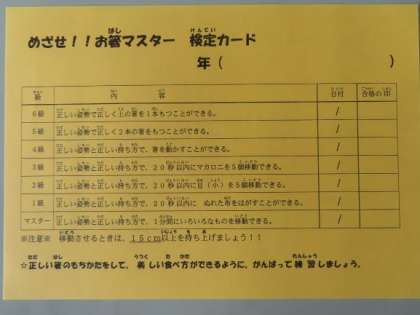 めざせ！！お箸マスター 検定カード
年（ ）
級 内容 日付 合格の印
6級 正しい姿勢で正しく上の箸を1本もつことができる。 /
5級 正しい姿勢で正しく2本の箸をもつことができる。 /
4級 正しい姿勢と正しい持ち方で、箸を動かすことができる。 /
3級 正しい姿勢と正しい持ち方で、20秒以内にマカロニを5個移動できる。 /
2級 正しい姿勢と正しい持ち方で、20秒以内に豆（小）を5個移動できる。 /
1級 正しい姿勢と正しい持ち方で、20秒以内に ぬれた布をはがすことができる。 /
マスター 正しい姿勢と正しい持ち方で、1分間にいろいろなものを移動できる。 /
※注意※ 移動させるときは、15cm以上を持ち上げましょう！！
☆正しい箸のもちかたをして、美しい食べ方ができるように、がんばって練習しましょう。